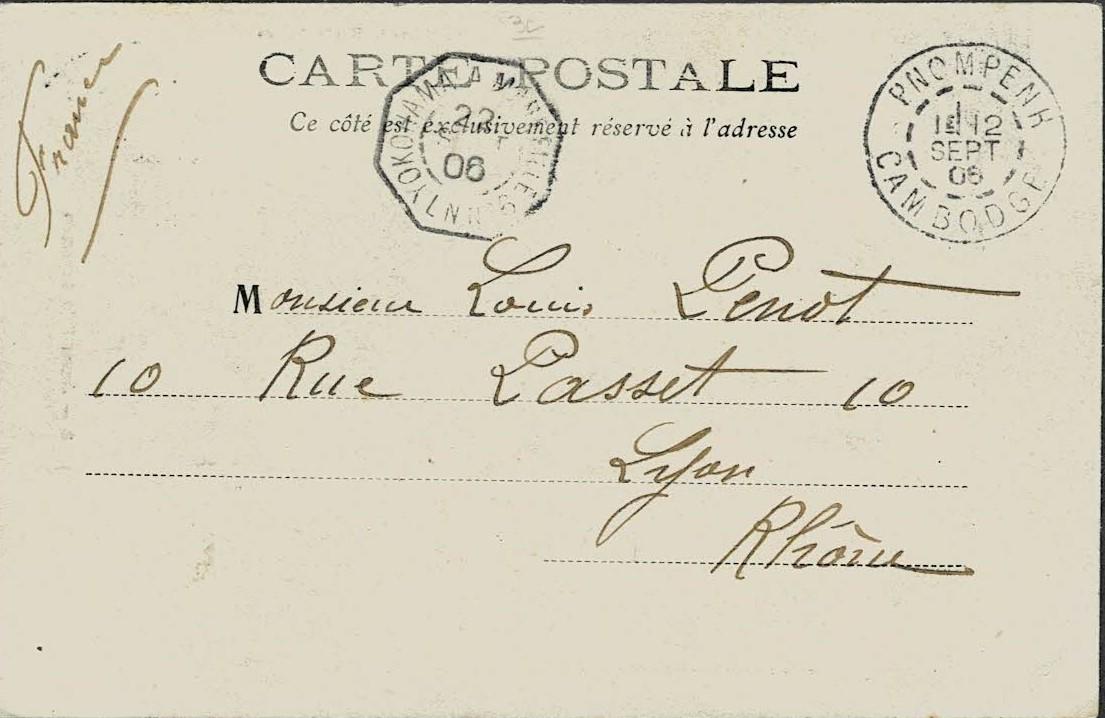 France
CARTE POSTALE
Ce côté est exclusivement réservé à l'adresse
YOKOHAMA A MARSEILLE
22
06
LN Nº5
PNOMPENH
1E 12
SEPT
06
CAMBODGE
Monsieur Louis Penot
10 Rue Passet 10
Lyon
Rhône